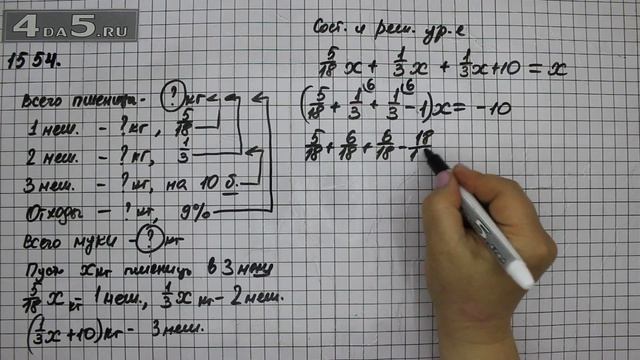 4DA5.RU
1554.
Всего пшениць- ? кг
1 меш. - ? кг, 5/18
2 меш. - ? кг, 1/3
3 меш. - ? кг, на 10 б.
Отходы - ? кг, 9%
Всего муки - ? кг
Пусть x кг пшениць в 3 меш
5/18 x кг - 1 меш., 1/3 x кг - 2 меш.
(1/3 x + 10) кг - 3 меш.
Сост. и реш. ур-е
5/18 x + 1/3 x + 1/3 x + 10 = x
(5/18 + 1/3 ⁶ + 1/3 ⁶ - 1) x = - 10
5/18 + 6/18 + 6/18 - 18/1